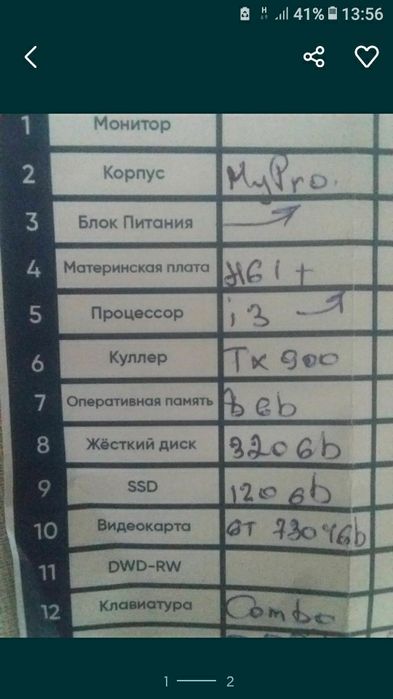 H 41% 13:56
1 Монитор
2 Корпус MyPro.
3 Блок Питания
4 Материнская плата H61 +
5 Процессор i3
6 Куллер Tx 900
7 Оперативная память 8Gb
8 Жёсткий диск 320Gb
9 SSD 120Gb
10 Видеокарта GT 730 4Gb
11 DWD-RW
12 Клавиатура Combo
1 2